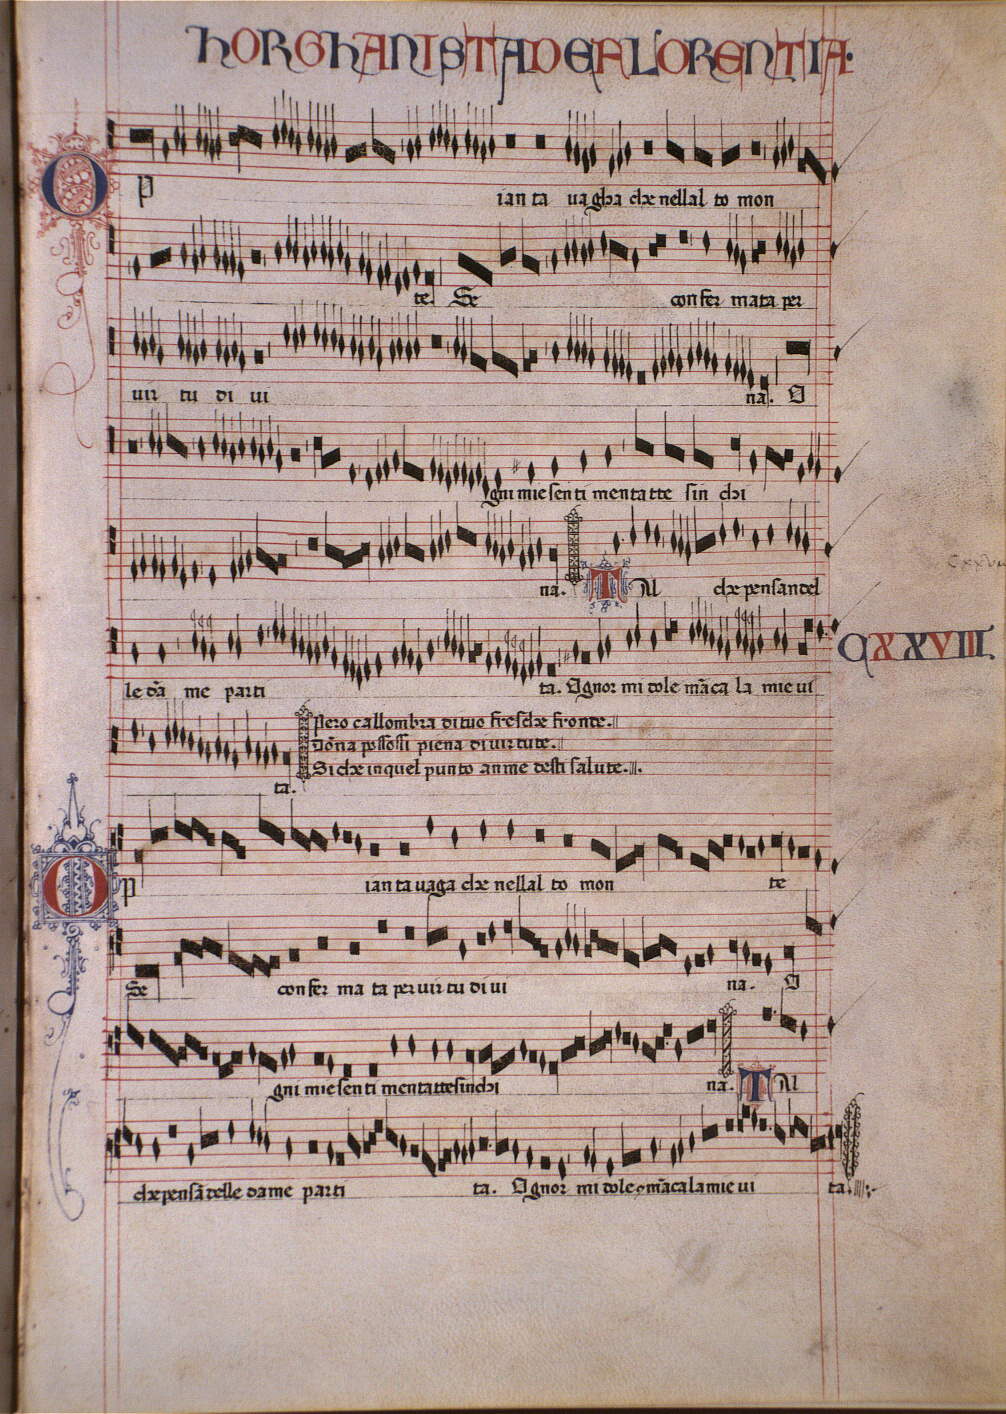 HORGHANISTA DE FLORENTIA.
O P ian ta va gha che nellal to mon
te. Se con fer mata per
vir tu di vi na. O
gni mie sen ti men ta tte sin chi
na. T Al che pensan del
le dā me parti ta. Ognor mi dole m̄aca la mie vi
CXXVIII.
Pero callombra di tuo fresche fronte.
Dōna possossi piena di virtute.
Si che in quel punto an me desti salute.
ta.
O P ian ta vaga che nellal to mon te
Se con fer ma ta per vir tu di vi na. O
gni mie sen ti men ta tte sin chi na. T Al
che pensā delle dame parti ta. Ognor mi dole m̄aca la mie vi ta.